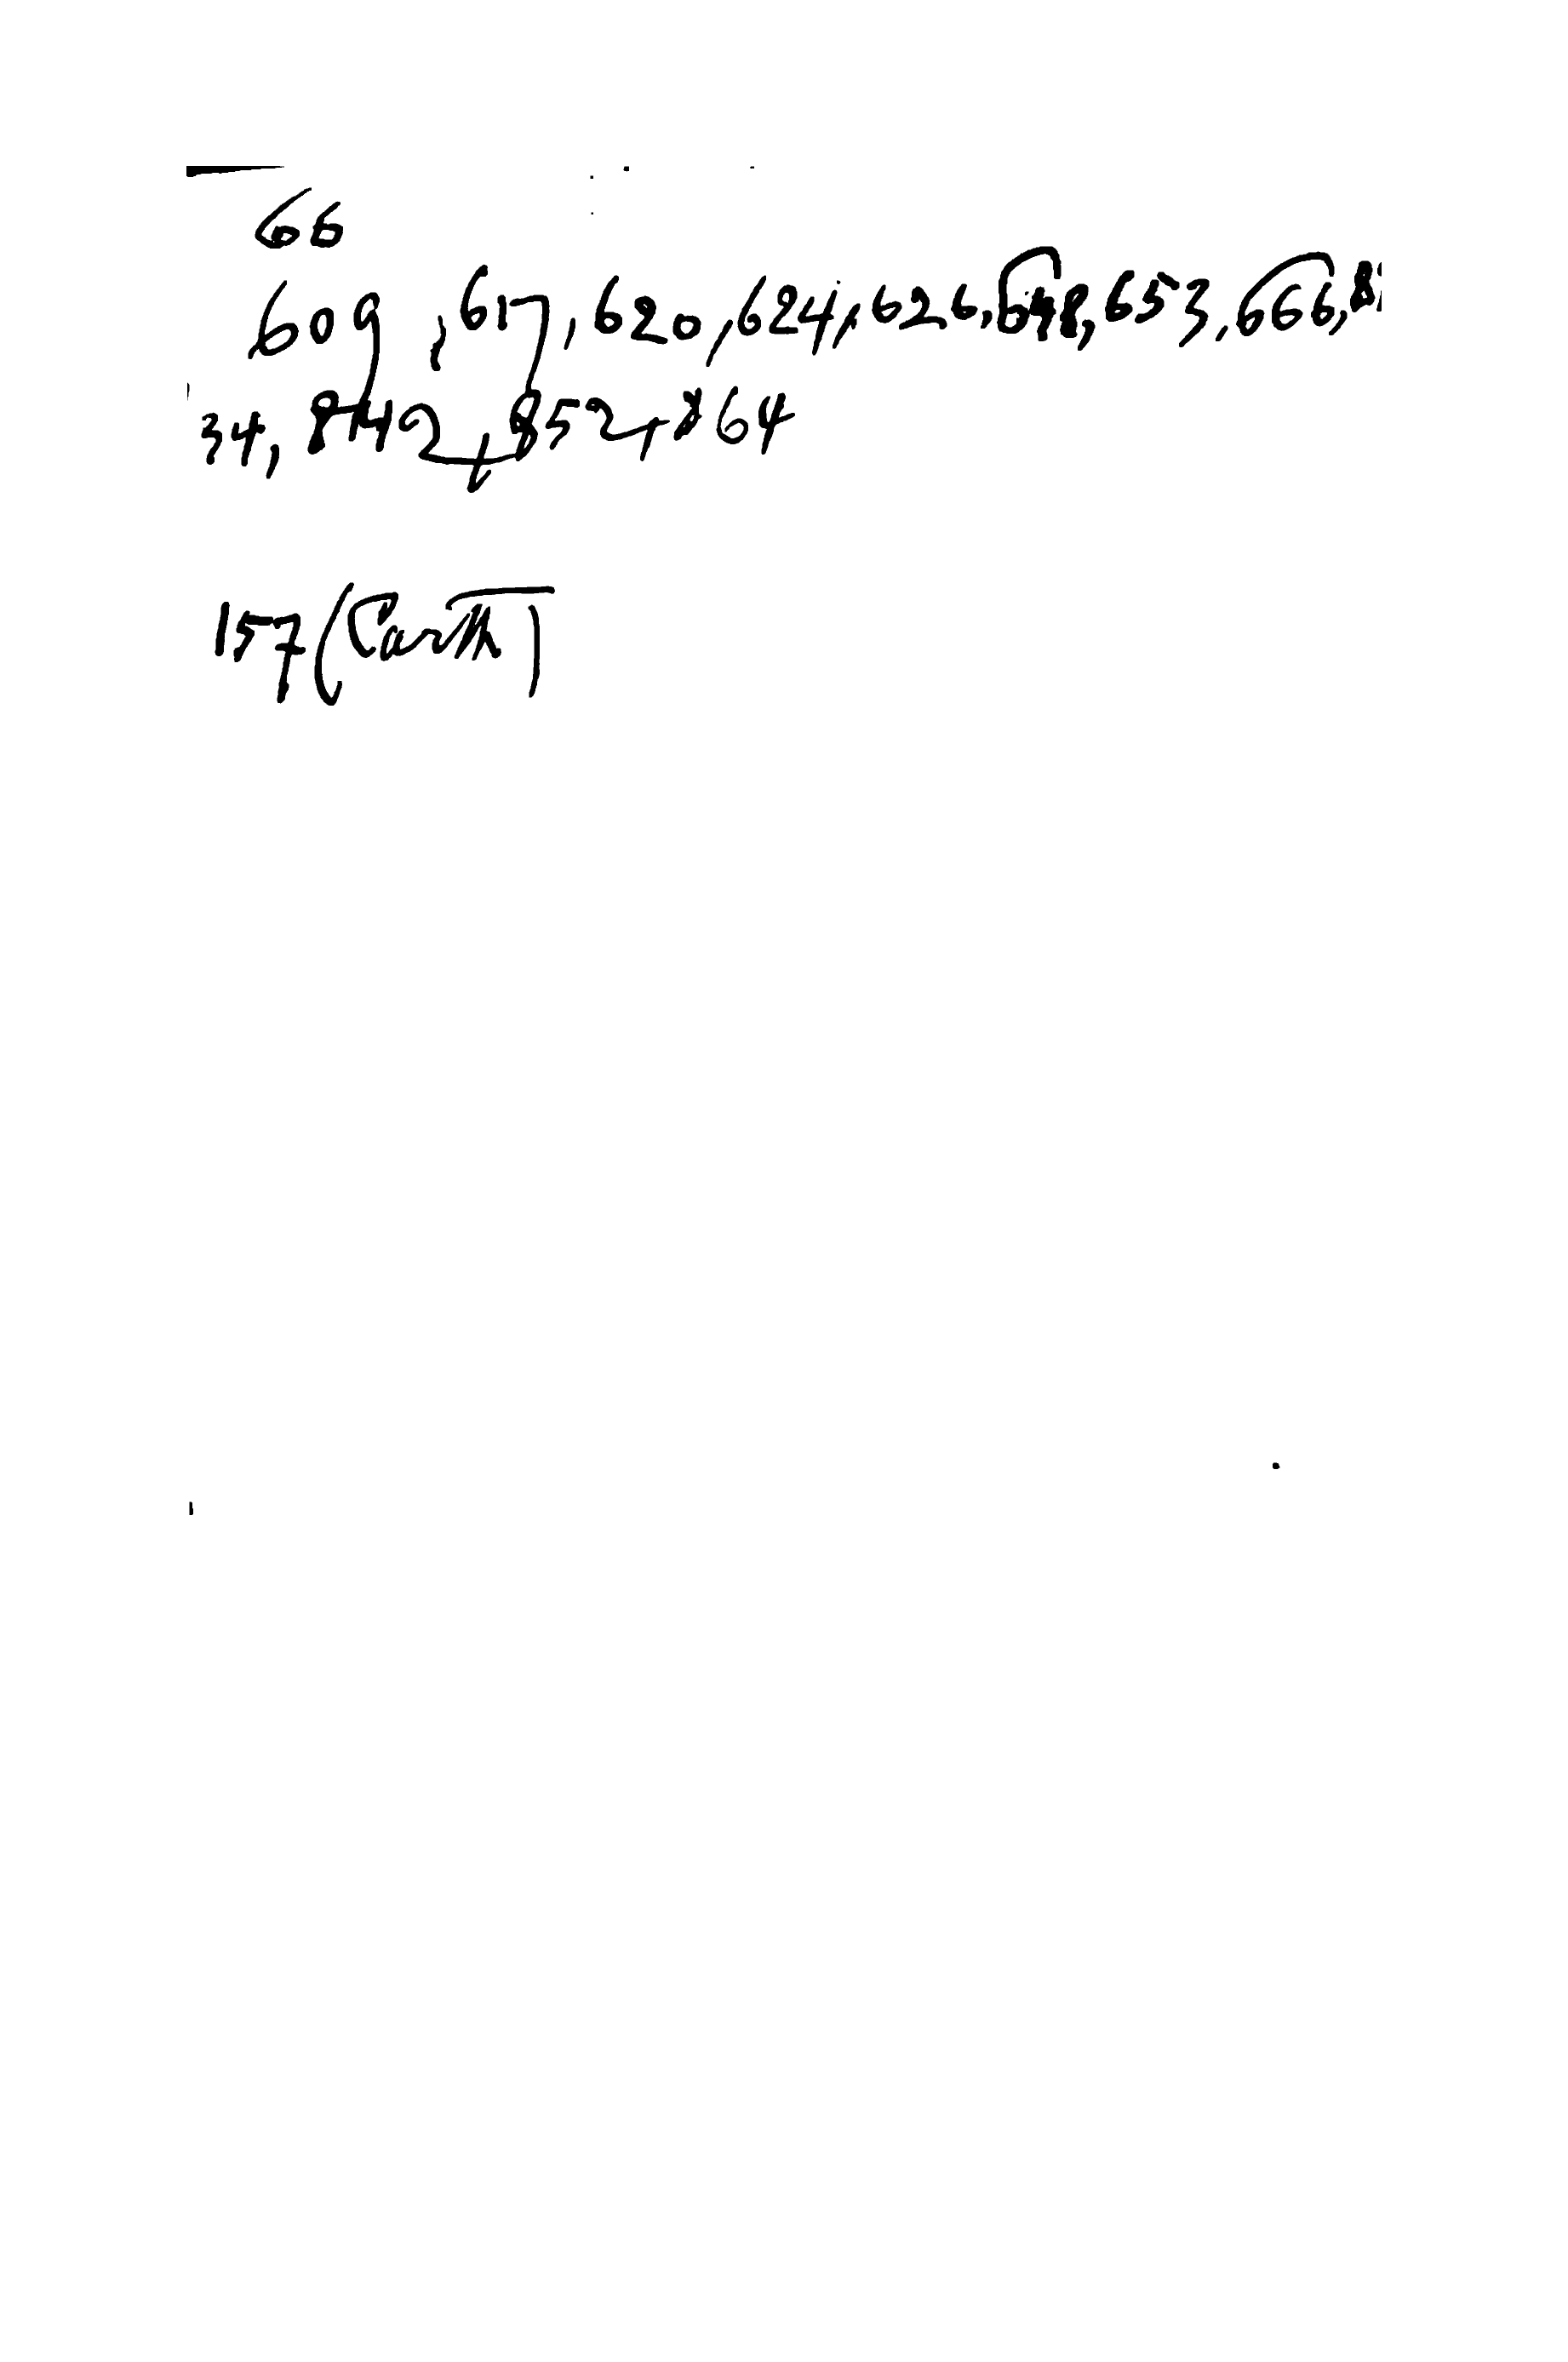 66
609, 617, 620, 624, 626, 648, 653, 666,
34, 842, 852, 864
157 (Carth)